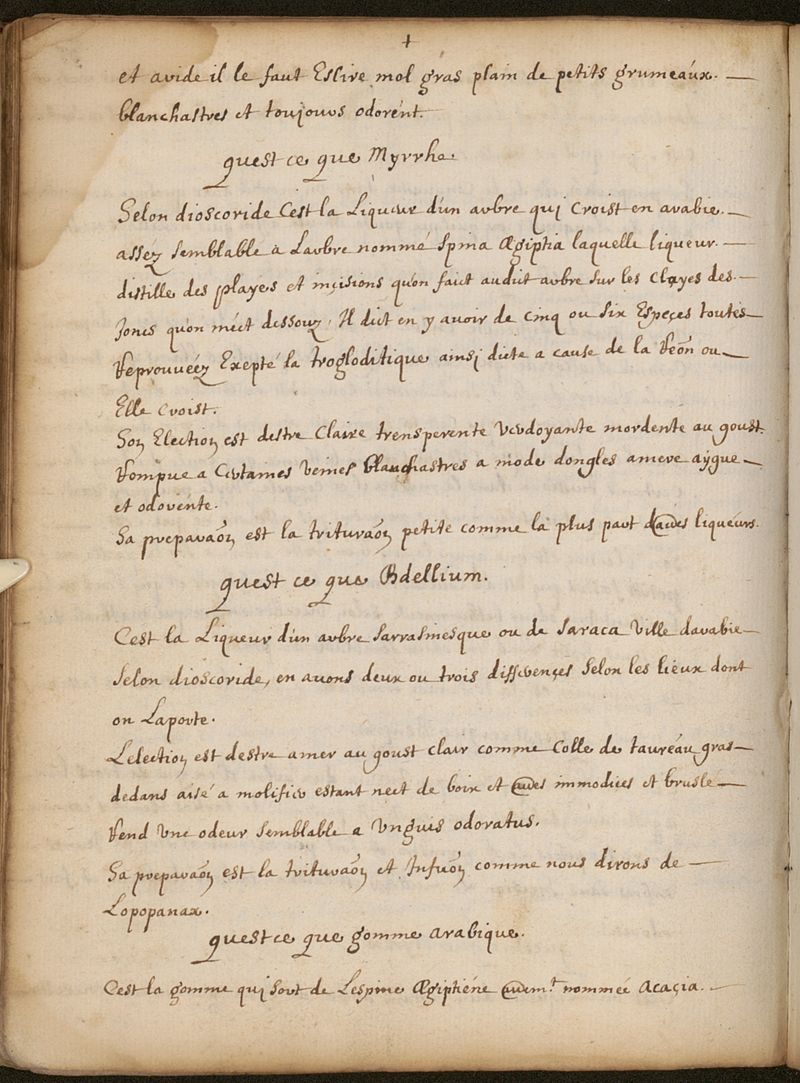 +
et avide il le faut Eslire mol gras plain de petits grumeaux.
blanchastres et toujours odorént.
quest ce que Myrrhe.
Selon dioscoride Cest la Liqueur d'un arbre qui Croist en arabie.
asséz semblable a Larbre nommé Spina Ægiptia laquelle liqueur.
distille des playes et inçisions qu'on faict audict arbre sur les clayes des.
Joncs qu'on mect dessouz, Il dict en y avoir de Cinq ou six Espeçes toutes
Reprouvéez Exepté la trogloditique ainsi dicte a cause de la Reōn ou
Elle Croist.
Son Election est destre Claire trensperente Verdoyante mordente au goust.
Rompue a Certames Veines blanchastres a mode dongles amere aÿgue
et odorente.
Sa preparaōn est la trituraōn petite comme la plus part dautres liqueurs.
quest ce que Bdellium.
Cest la Liqueur d'un arbre sarrasinesque ou de saraca Ville darabie
Selon dioscoride, en avons deux ou trois differençes Selon les lieux dont
on Laporte.
Lelection est destre amer au goust clair comme Colle de taureau gras
dedans aisé a molifier estant nect de boix et autres immodices et bruslé
Rend Une odeur semblable a Unguis odoratus.
Sa preparaōn est la trituraōn et Infuōn comme nous dirons de
Lopopanax.
quest ce que gomme arabique.
Cest la gomme qui sort de Lespine Ægiptiéne autrem.t nommée Acaçia.